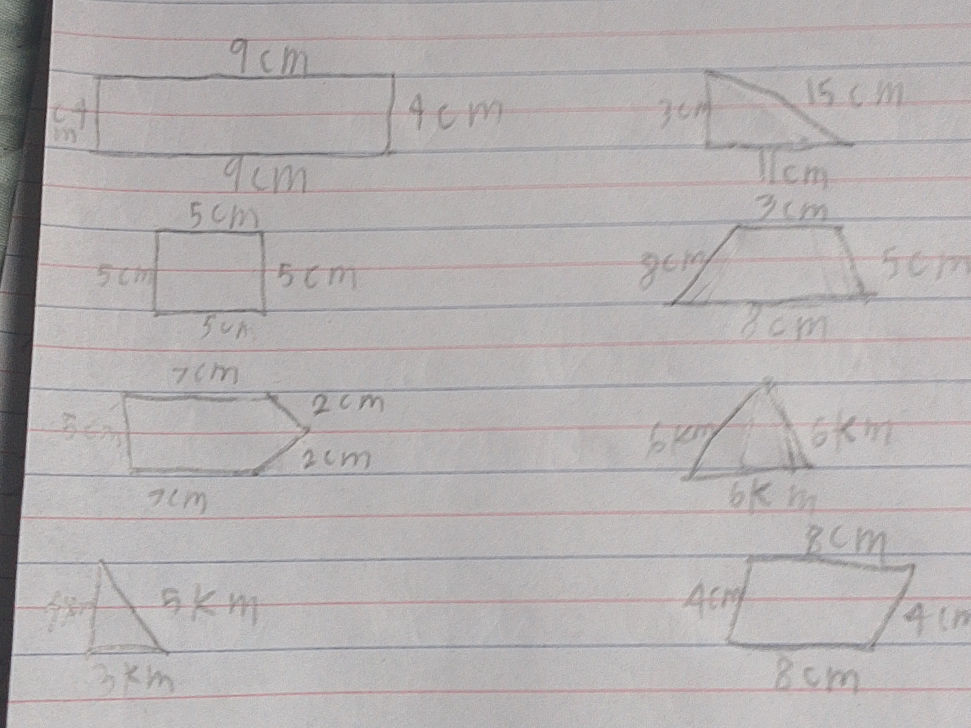 9cm
4cm
4cm
9cm
3cm
15cm
11cm
5cm
5cm
5cm
5cm
3cm
8cm
5cm
8cm
7cm
5cm
2cm
2cm
7cm
6km
6km
6km
5km
3km
8cm
4cm
4cm
8cm